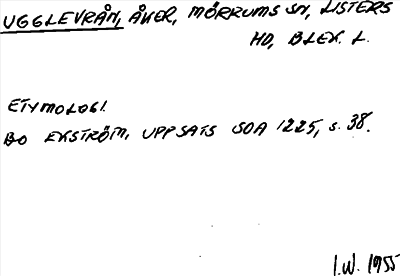 UGGLEVRÅN, ÅKER, MÖRRUMS SN, LISTERS
HD, BLEK. L.
ETYMOLOGI.
BO EKSTRÖM, UPPSATS SOA 1225, s. 38.
I.W. 1955